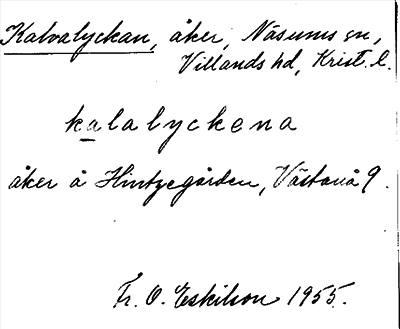 Kalvalyckan, åker, Näsums sn,
Villands hd, Krist. l.
kalalyckena
åker å Hintzegården, Västanå 9.
Fr. O. Eskilson 1955.